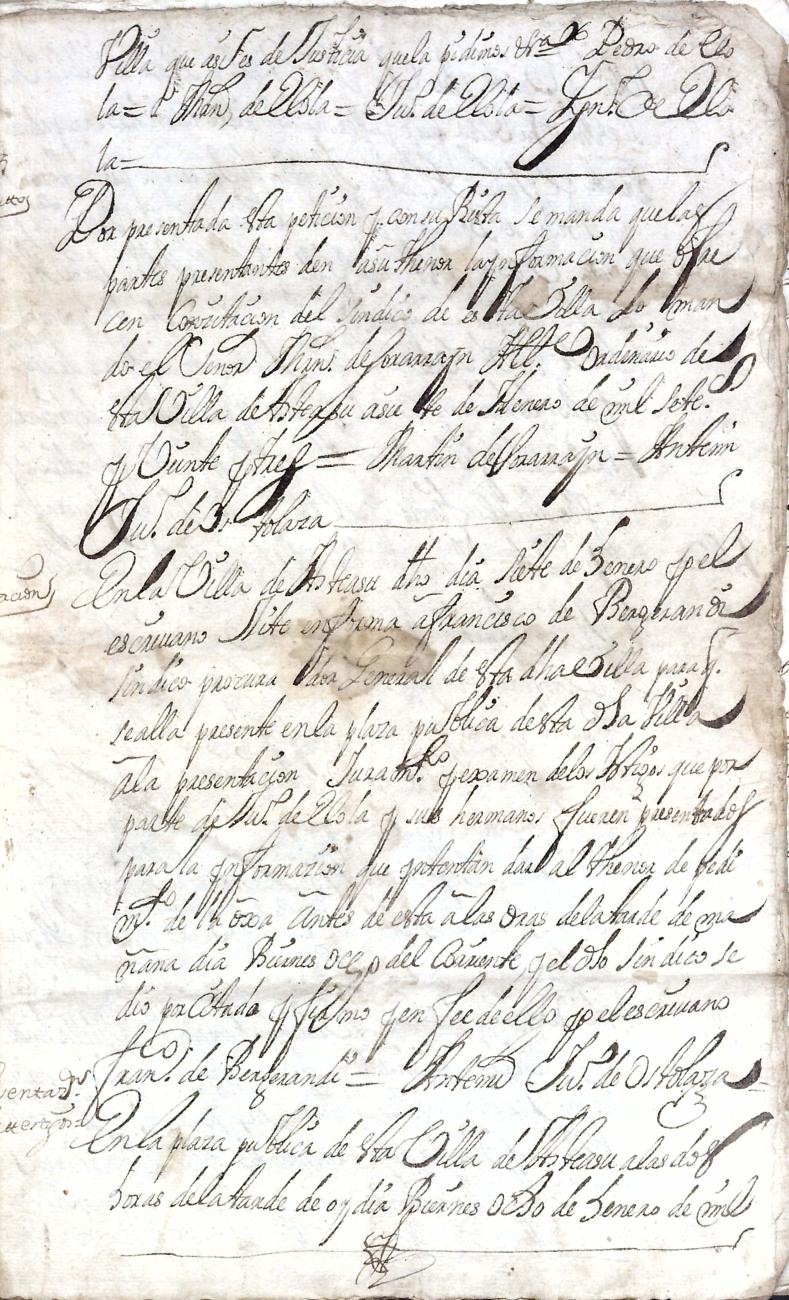 Villa que así es de Justicia que la pidimos &ª Pedro de Llo
la = Mrn de Llola = Juº. de Llola = Ygnº de Llo
la =
Por presentada esta peticion y con su Bista se manda que las
partes presentantes den a su thenor la ynformacion que ofre
cen con citacion del Sindico de esta Villa lo man
do el Señor Mrnº. de Sorarrayn Alle. Ordinario de
esta Villa de Asteasu a siete de Henero de mil sete.s
y Veinte y tres = Martin de Sorarrayn = Antemi
Juº. de Ostolaza
En la Villa de Asteasu dho dia siete de henero yo el
escrivano Zite en forma a francisco de Bergerandi
sindico procurador General de esta dha Villa para q.
se alla presente en la plaza publica de esta dha Villa
a la presentacion Juramto. y examen de los testigos que por
parte de Juº. de Llola y sus hermanos fueren presentados
para la ynformacion que yntentan dar al thenor de pedi
mtº. de la oxa antes de esta a las oras de la tarde de ma
ñana dia Biernes ocho del Corriente, y el dho sindico se
dio por citado y firmo y en fee de ello yo el escrivano
franco. de Bergerandi = Antemi Juº. de Ostolaza =
En la plaza publica de esta Villa de Asteasu a las dos
horas de la tarde de oy dia Biernes ocho de henero de mil